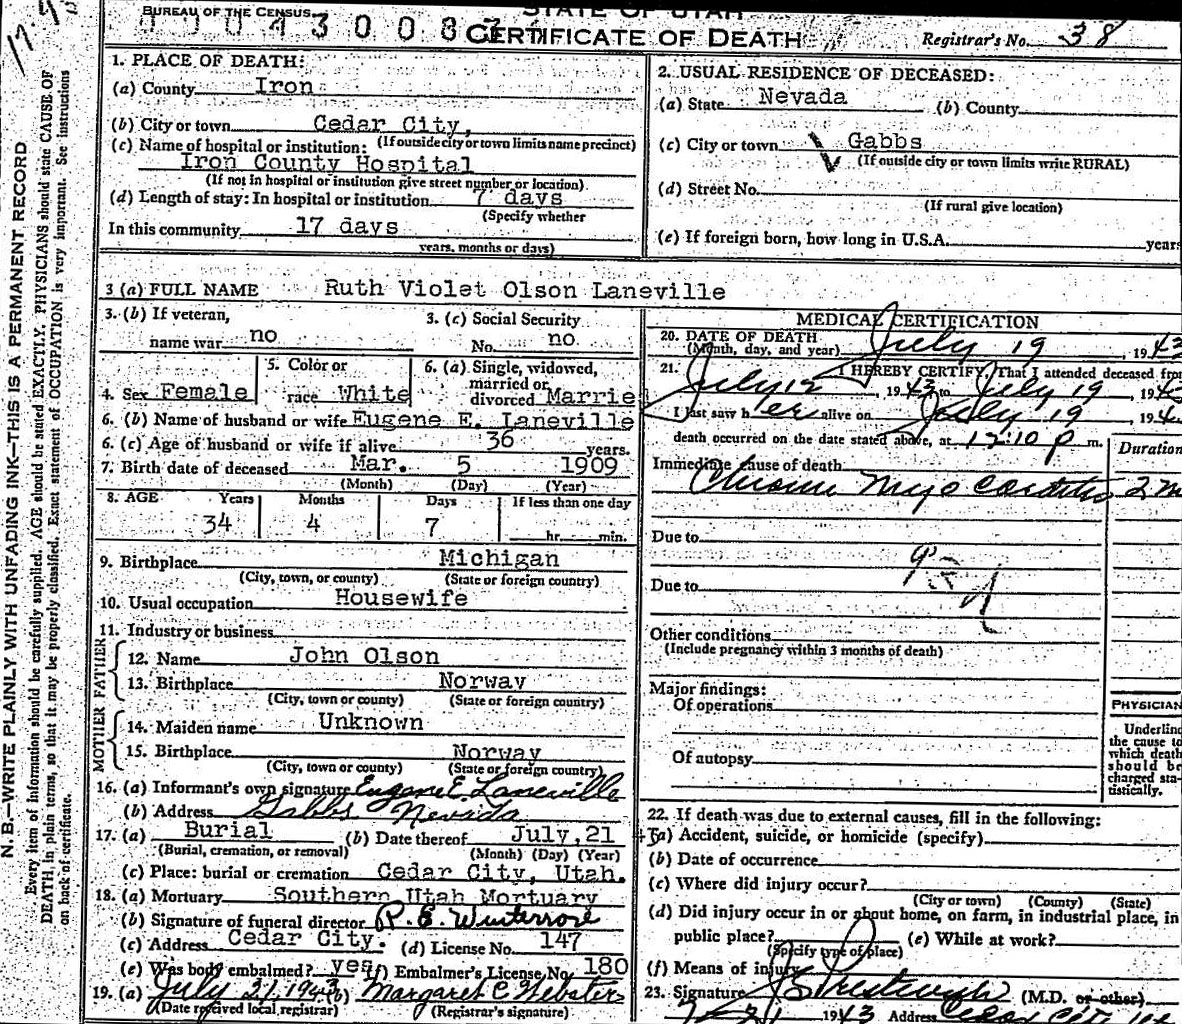 BUREAU OF THE CENSUS
STATE OF UTAH
CERTIFICATE OF DEATH
Registrar's No. 38
N. B.—WRITE PLAINLY WITH UNFADING INK—THIS IS A PERMANENT RECORD
Every item of information should be carefully supplied. AGE should be stated EXACTLY. PHYSICIANS should state CAUSE OF
DEATH in plain terms, so that it may be properly classified. Exact statement of OCCUPATION is very important. See instructions
on back of certificate.
1. PLACE OF DEATH:
(a) County Iron
(b) City or town Cedar City,
(If outside city or town limits name precinct)
(c) Name of hospital or institution:
Iron County Hospital
(If not in hospital or institution give street number or location)
(d) Length of stay: In hospital or institution 7 days
(Specify whether
In this community 17 days
years, months or days)
2. USUAL RESIDENCE OF DECEASED:
(a) State Nevada (b) County
(c) City or town Gabbs
(If outside city or town limits write RURAL)
(d) Street No.
(If rural give location)
(e) If foreign born, how long in U.S.A. years
3 (a) FULL NAME Ruth Violet Olson Laneville
3. (b) If veteran,
name war no
3. (c) Social Security
No. no
4. Sex Female
5. Color or
race White
6. (a) Single, widowed,
married or
divorced Marrie
6. (b) Name of husband or wife Eugene E. Laneville
6. (c) Age of husband or wife if alive 36 years.
7. Birth date of deceased Mar. 5 1909
(Month) (Day) (Year)
8. AGE Years Months Days If less than one day
34 4 7 hr. min.
9. Birthplace Michigan
(City, town, or county) (State or foreign country)
10. Usual occupation Housewife
11. Industry or business
FATHER
12. Name John Olson
13. Birthplace Norway
(City, town or county) (State or foreign country)
MOTHER
14. Maiden name Unknown
15. Birthplace Norway
(City, town or county) (State or foreign country)
16. (a) Informant's own signature Eugene E. Laneville
(b) Address Gabbs Nevada
17. (a) Burial (b) Date thereof July, 21 43
(Burial, cremation, or removal) (Month) (Day) (Year)
(c) Place: burial or cremation Cedar City, Utah.
18. (a) Mortuary Southern Utah Mortuary
(b) Signature of funeral director
(c) Address Cedar City. (d) License No. 147
(e) Was body embalmed? yes (f) Embalmer's License No. 180
19. (a) July 21, 1943 (b) Margaret C Webster
(Date received local registrar) (Registrar's signature)
MEDICAL CERTIFICATION
20. DATE OF DEATH
(Month, day, and year) July 19, 1943
21. I HEREBY CERTIFY, That I attended deceased from
July 12, 1943 to July 19, 194
I last saw her alive on July 19, 194
death occurred on the date stated above, at 12:10 p m.
Duration
Immediate cause of death
Chronic Myocarditis 2 m
Due to
Due to
Other conditions
(Include pregnancy within 3 months of death)
Major findings:
Of operations
Of autopsy
PHYSICIAN
Underline
the cause to
which death
should be
charged sta-
tistically.
22. If death was due to external causes, fill in the following:
(a) Accident, suicide, or homicide (specify)
(b) Date of occurrence
(c) Where did injury occur?
(City or town) (County) (State)
(d) Did injury occur in or about home, on farm, in industrial place, in
public place? (e) While at work?
(Specify type of place)
(f) Means of injury
23. Signature (M.D. or other)
7-21 1943 Address Cedar City